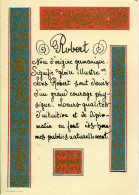 Robert
Nom d'origine germanique
Signifie "gloire illustre".
Les Robert sont doués
d'un grand courage phy-
sique. Leurs qualités
d'intuition et de diplo-
matie en font des hom-
mes publics naturellement.